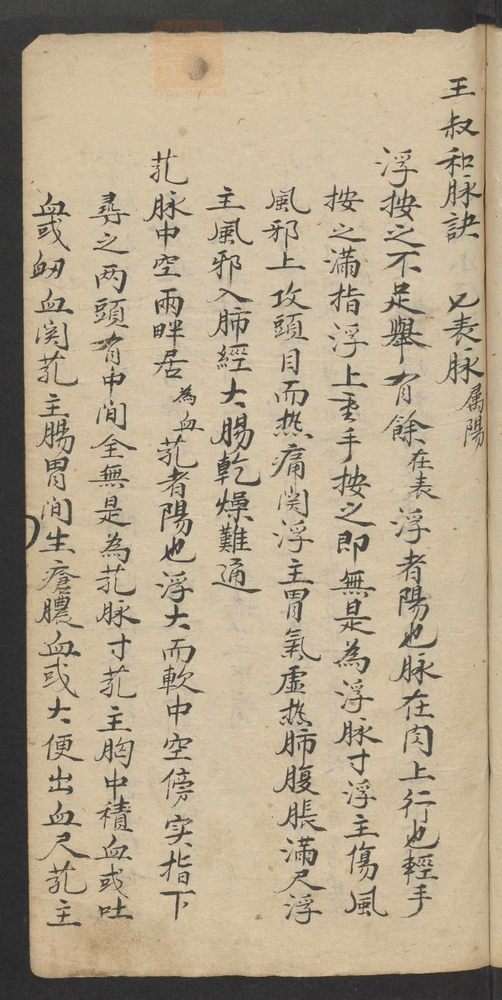 王叔和脉訣 七表脉 属陽
浮按之不足舉有餘 在表 浮者陽也脉在肉上行也輕手
按之滿指浮上重手按之即無是為浮脉寸浮主傷風
風邪上攻頭目而熱痛関浮主胃氣虛熱肺腹脹滿尺浮
主風邪入肺經大腸乾燥難通
芤脉中空兩畔居 為血 芤者陽也浮大而軟中空傍实指下
尋之两頭有中间全無是為芤脉寸芤主胸中積血或吐
血或衂血関芤主腸胃间生瘡膿血或大便出血尺芤主